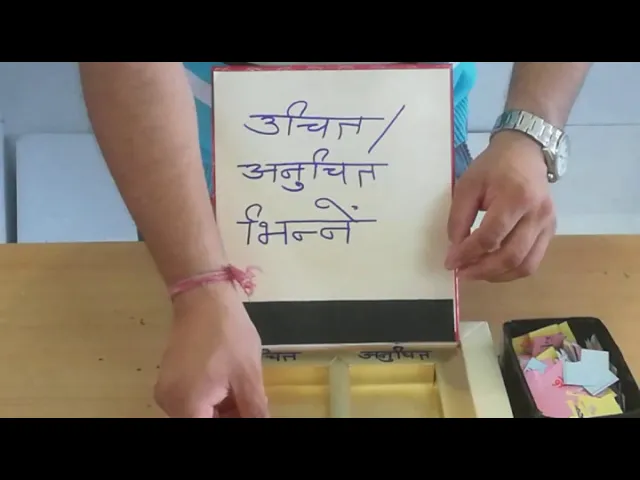 उचित/
अनुचित
भिन्नें
अनुचित